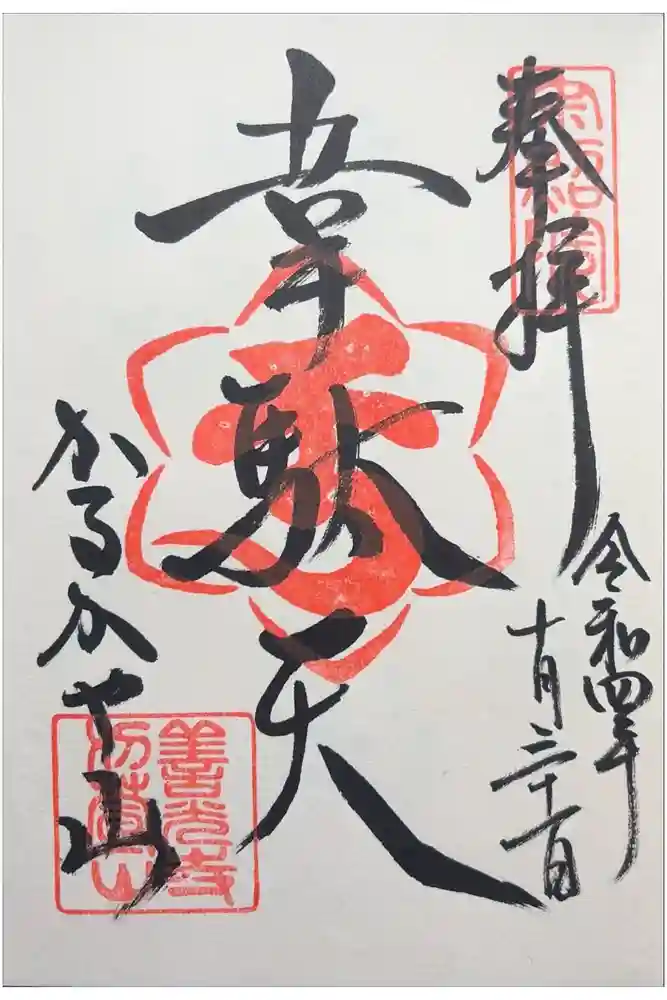 奉拝
令和四年
十月三十一日
韋駄天
かるかや山
善光寺